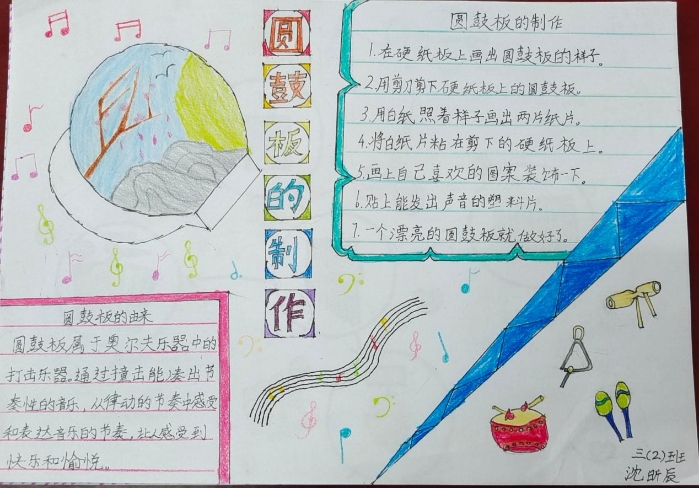 圆鼓板的制作
圆鼓板的制作
1.在硬纸板上画出圆鼓板的样子。
2.用剪刀剪下硬纸板上的圆鼓板。
3.用白纸照着样子画出两片纸片。
4.将白纸片粘在剪下的硬纸板上。
5.画上自己喜欢的图案装饰一下。
6.贴上能发出声音的塑料片。
7.一个漂亮的圆鼓板就做好了。
圆鼓板的由来
圆鼓板属于奥尔夫乐器中的
打击乐器。通过撞击能凑出节
奏性的音乐，从律动的节奏中感受
和表达音乐的节奏，让人感受到
快乐和愉悦。
三(2)班
沈昕辰